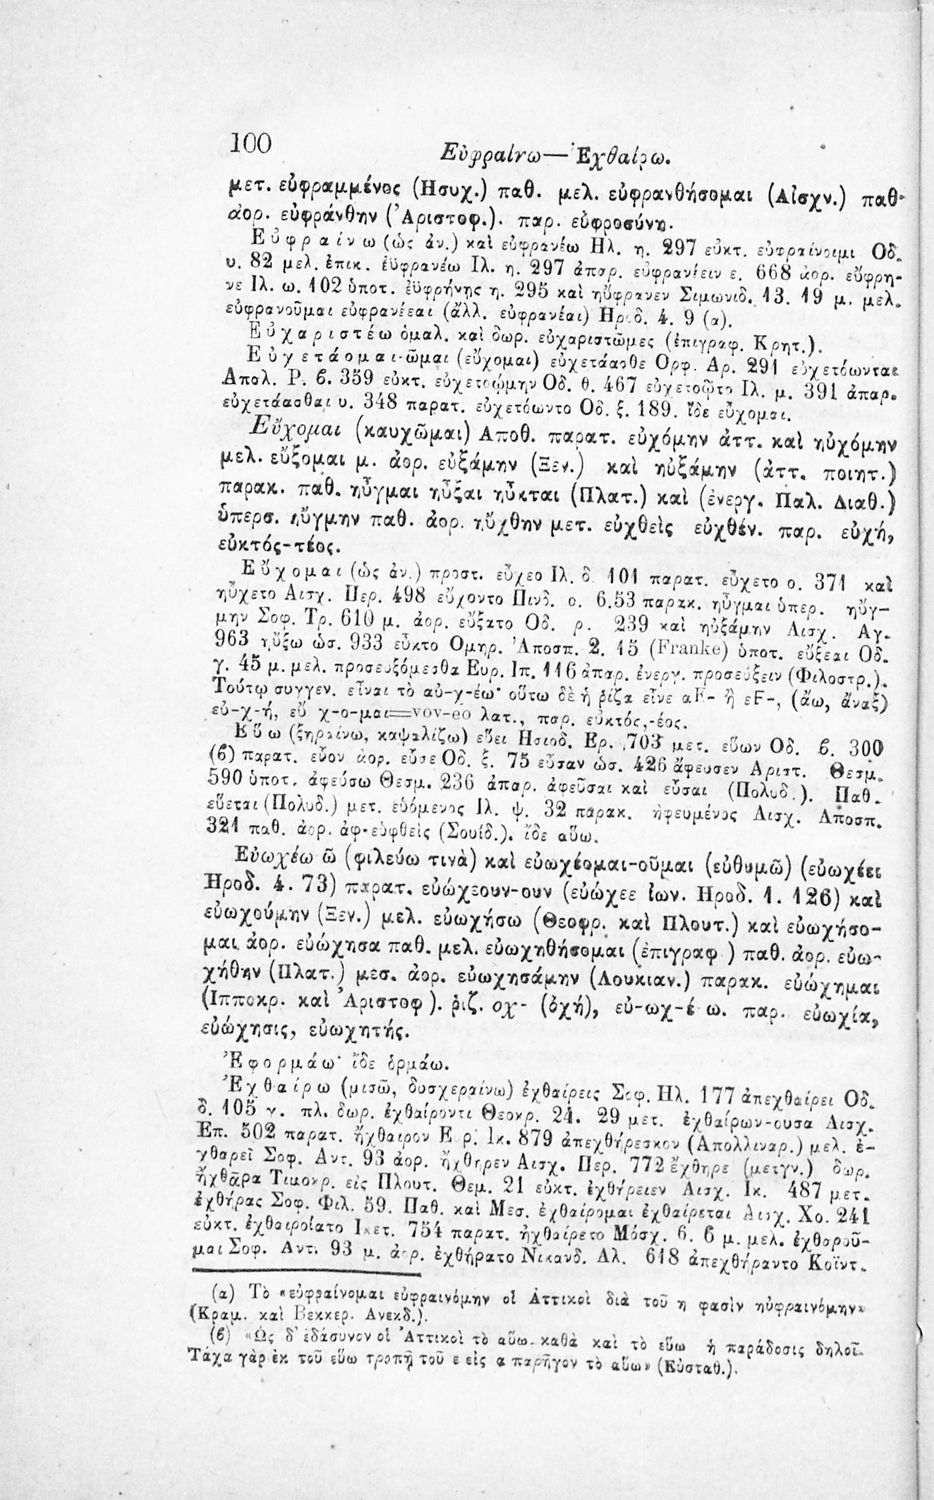 100
Εὐφραίνω—Ἐχθαίρω.
μετ. εὐφραμμένος (Ησυχ.) παθ. μελ. εὐφρανθήσομαι (Αἰσχν.) παθ.
ἀορ. εὐφράνθην (Ἀριστοφ.). παρ. εὐφροσύνη.
Εὐφραίνω (ὡς ἀν.) καὶ εὐφρανέω Ηλ. η. 297 εὐκτ. εὐφραίνοιμι Οδ.
υ. 82 μελ. ἐπικ. ἐϋφρανέω Ιλ. η. 297 ἀπαρ. εὐφρανέειν ε. 668 ἀορ. εὔφρη-
νε Ιλ. ω. 102 ὑποτ. ἐϋφρήνῃς η. 295 καὶ ηὔφρανεν Σιμωνιδ. 13. 19 μ. μελ.
εὐφρανοῦμαι εὐφρανέεαι (ἄλλ. εὐφρανέαι) Ηροδ. 4. 9 (α).
Εὐχαριστέω ὁμαλ. καὶ δωρ. εὐχαριστῶμες (ἐπιγραφ. Κρητ.).
Εὐχετάομαι-ῶμαι (εὔχομαι) εὐχετάασθε Ορφ. Αρ. 291 εὐχετόωνται
Απολ. Ρ. ϐ. 359 εὐκτ. εὐχετοῴμην Οδ. θ. 467 εὐχετοῷτο Ιλ. μ. 391 ἀπαρ.
εὐχετάασθαι υ. 348 παρατ. εὐχετόωντο Οδ. ξ. 189. ἴδε εὔχομαι.
Εὔχομαι (καυχῶμαι) Αποθ. παρατ. εὐχόμην ἀττ. καὶ ηὐχόμην
μελ. εὔξομαι μ. ἀορ. εὐξάμην (Ξεν.) καὶ ηὐξάμην (ἀττ. ποιητ.)
παρακ. παθ. ηὖγμαι ηὖξαι ηὖκται (Πλατ.) καὶ (ἐνεργ. Παλ. Διαθ.)
ὑπερσ. ηὔγμην παθ. ἀορ. ηὔχθην μετ. εὐχθεὶς εὐχθέν. παρ. εὐχή,
εὐκτός-τέος.
Εὔχομαι (ὡς ἀν.) προστ. εὔχεο Ιλ. δ 101 παρατ. εὔχετο ο. 371 καὶ
ηὔχετο Αισχ. Περ. 498 εὔχοντο Πινδ. ο. 6.53 παρακ. ηὖγμαι ὑπερ. ηὔγ-
μην Σοφ. Τρ. 610 μ. ἀορ. εὔξατο Οδ. ρ. 239 καὶ ηὐξάμην Αισχ. Αγ.
963 ηὔξω ὡσ. 933 εὖκτο Ομηρ. Ἀποσπ. 2. 15 (Franke) ὑποτ. εὔξεαι Οδ.
γ. 45 μ. μελ. προσευξόμεσθα Ευρ. Ιπ. 116 ἀπαρ. ἐνεργ. προσεύξειν (Φιλοστρ.).
Τούτῳ συγγεν. εἶναι τὸ αὐ-χ-έω· οὕτω δὲ ἡ ῥίζα εἶνε αF- ἢ εF-, (ἄω, ἄναξ)
εὐ-χ-ή, εὔ χ-ο-μαι=vov-eo λατ., παρ. εὐκτός,-έος.
Εὕω (ξηραίνω, καψαλίζω) εὕει Ησιοδ. Ερ. 703 μετ. εὕων Οδ. ϐ. 300
(ϐ) παρατ. εὗον ἀορ. εὗσε Οδ. ξ. 75 εὗσαν ὡσ. 426 ἄφευσεν Αριστ. Θεσμ.
590 ὑποτ. ἀφεύσω Θεσμ. 236 ἀπαρ. ἀφεῦσαι καὶ εὗσαι (Πολυδ.). Παθ.
εὕεται (Πολυδ.) μετ. εὑόμενος Ιλ. ψ. 32 παρακ. ἠφευμένος Αισχ. Αποσπ.
321 παθ. ἀορ. ἀφ-ευφθεὶς (Σουίδ.). ἴδε αὔω.
Εὐωχέω ῶ (φιλεύω τινὰ) καὶ εὐωχέομαι-οῦμαι (εὐθυμῶ) (εὐωχέει
Ηροδ. 4. 73) παρατ. εὐώχεουν-ουν (εὐώχεε ἰων. Ηροδ. 1. 126) καὶ
εὐωχούμην (Ξεν.) μελ. εὐωχήσω (Θεοφρ. καὶ Πλουτ.) καὶ εὐωχήσο-
μαι ἀορ. εὐώχησα παθ. μελ. εὐωχηθήσομαι (ἐπιγραφ ) παθ. ἀορ. εὐω-
χήθην (Πλατ.) μεσ. ἀορ. εὐωχησάμην (Λουκιαν.) παρακ. εὐώχημαι
(Ιπποκρ. καὶ Ἀριστοφ ). ῥιζ. οχ- (ὀχή), εὐ-ωχ-έ ω. παρ. εὐωχία,
εὐώχησις, εὐωχητής.
Ἐφορμάω· ἴδε ὁρμάω.
Ἐχθαίρω (μισῶ, δυσχεραίνω) ἐχθαίρεις Σοφ. Ηλ. 177 ἀπεχθαίρει Οδ.
δ. 105 γ. πλ. δωρ. ἐχθαίροντι Θεοκρ. 24. 29 μετ. ἐχθαίρων-ουσα Αισχ.
Επ. 502 παρατ. ἤχθαιρον Ε ρ. Ικ. 879 ἀπεχθήρεσκον (Απολλιναρ.) μελ. ἐ-
χθαρεῖ Σοφ. Αντ. 93 ἀορ. ἤχθηρεν Αισχ. Περ. 772 ἔχθηρε (μετγν.) δωρ.
ἤχθᾶρα Τιμοκρ. εἰς Πλουτ. Θεμ. 21 εὐκτ. ἐχθήρειεν Αισχ. Ικ. 487 μετ.
ἐχθήρας Σοφ. Φιλ. 59. Παθ. καὶ Μεσ. ἐχθαίρομαι ἐχθαίρεται Αισχ. Χο. 241
εὐκτ. ἐχθαιροίατο Ικετ. 754 παρατ. ἠχθαίρετο Μόσχ. 6. 6 μ. μελ. ἐχθαροῦ-
μαι Σοφ. Αντ. 93 μ. ἀορ. ἐχθήρατο Νικανδ. Αλ. 618 ἀπεχθήραντο Κοΐντ.
(α) Τὸ «εὐφραίνομαι εὐφραινόμην οἱ Αττικοὶ διὰ τοῦ η φασὶν ηὐφραινόμην»
(Κραμ. καὶ Βεκκερ. Ανεκδ.).
(ϐ) «Ὡς δ' ἐδάσυνον οἱ Ἀττικοὶ τὸ αὕω. καθὰ καὶ τὸ εὕω ἡ παράδοσις δηλοῖ.
Τάχα γὰρ ἐκ τοῦ εὕω τροπῇ τοῦ ε εἰς α παρῆγον τὸ αὕω» (Εὐσταθ.).